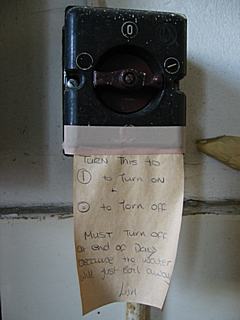 0
TURN THIS TO
① to Turn ON
+
⓪ to Torn OFF
MUST Turn off
at end of Day
because the water
will just boil away